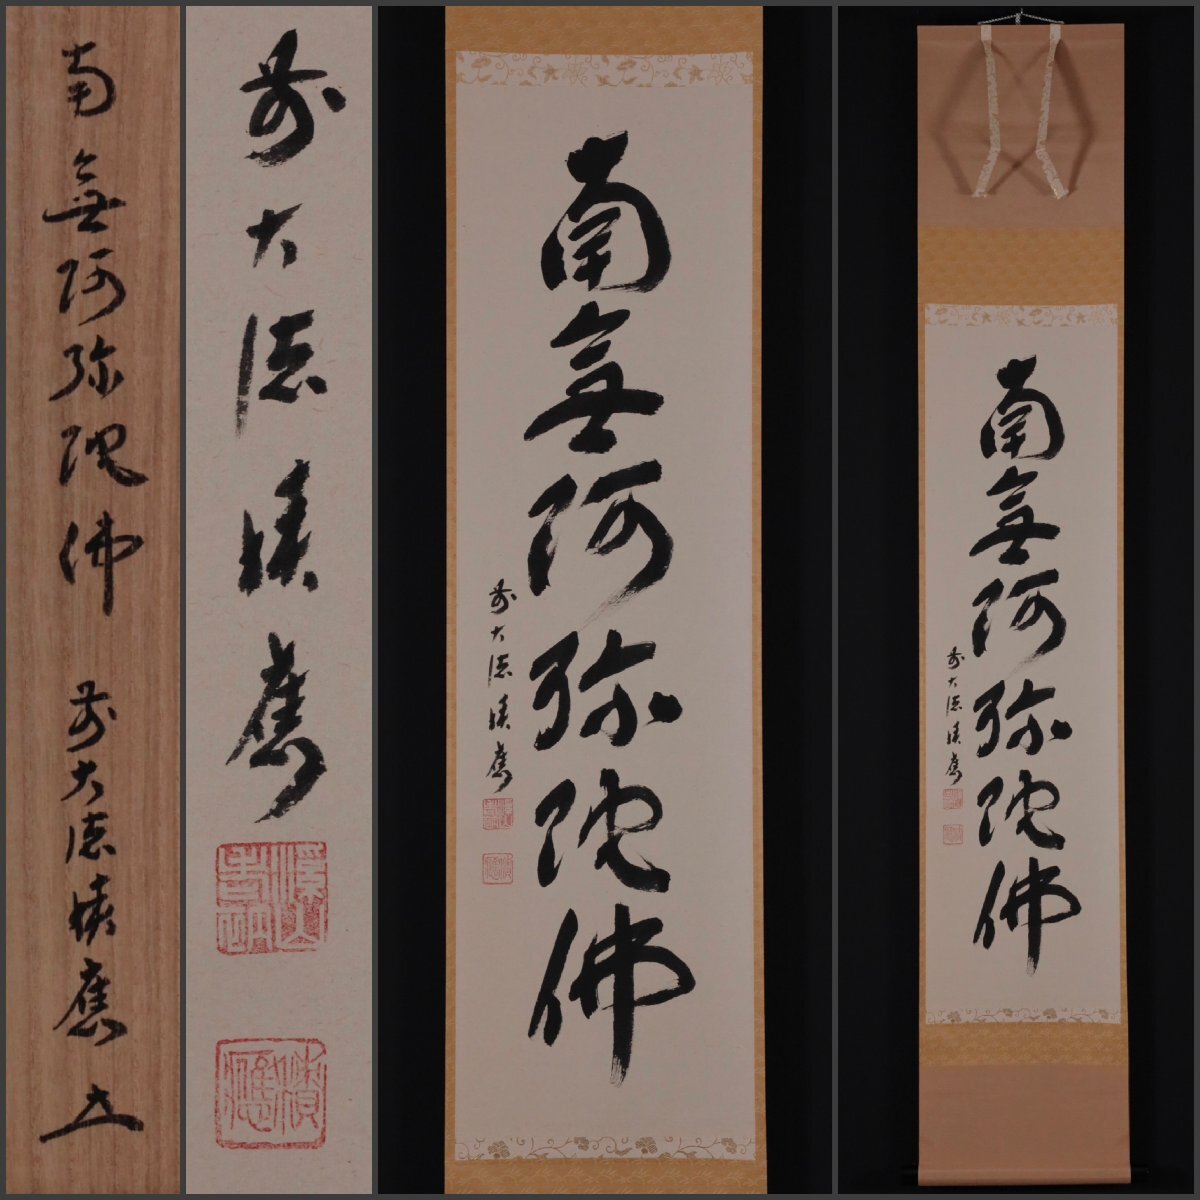 南無阿弥陀佛 前大徳積應
前大徳積應
積應
南無阿弥陀佛
前大徳積應
積應
南無阿弥陀佛
前大徳積應